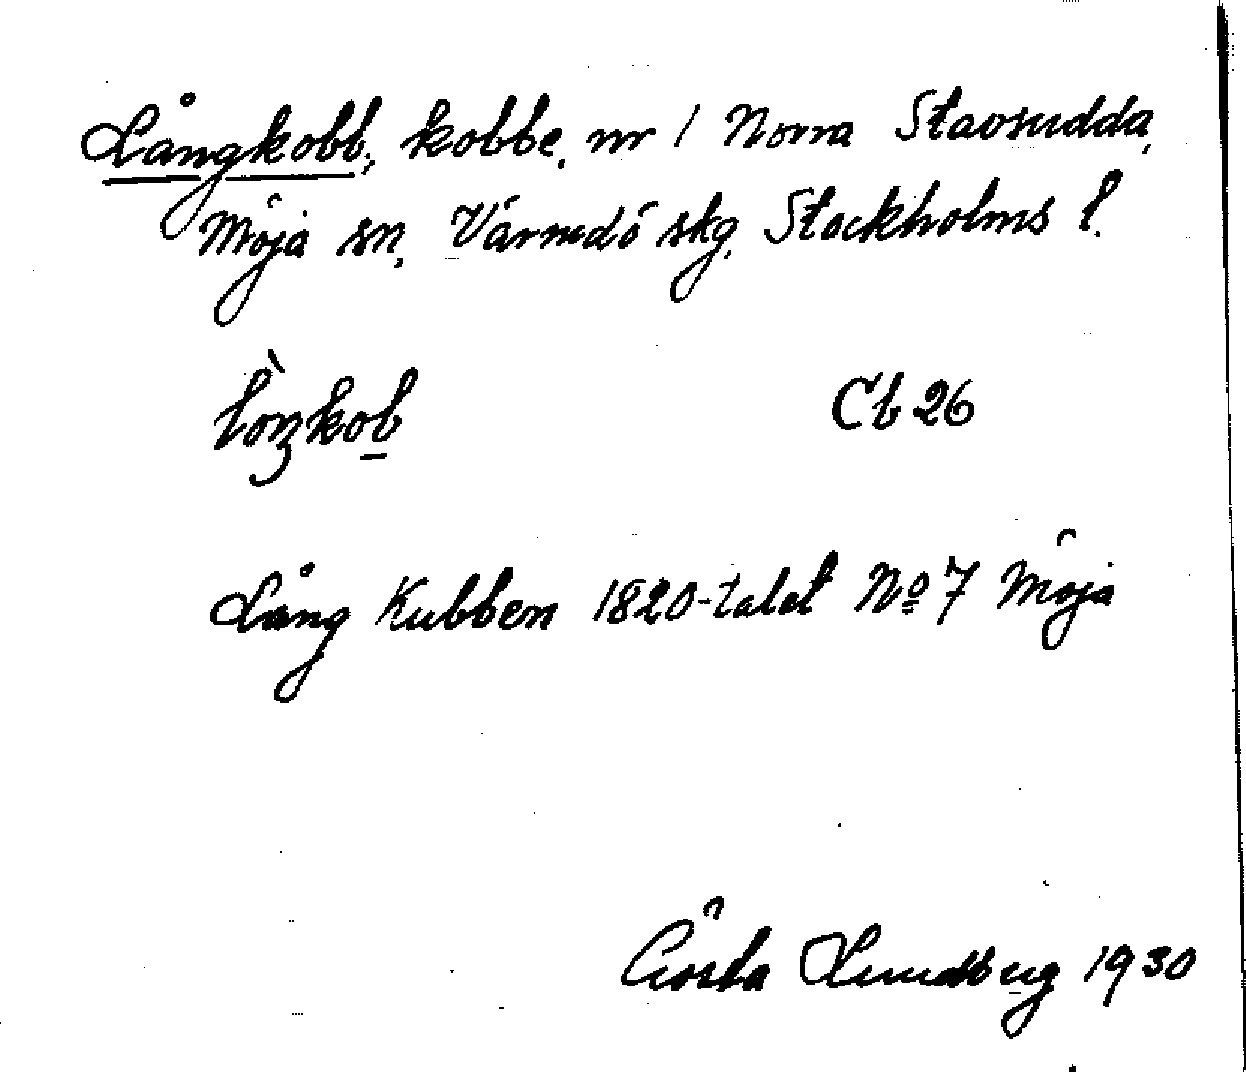 Långkobb, kobbe, nr 1 Norra Stavsudda,
Möja sn, Värmdö skg. Stockholms l.
lòŋkob Cb 26
Lång Kubben 1820-talet No 7 Möja
Gösta Lundberg 1930